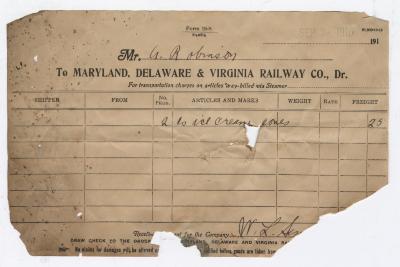 Form 28-S
191
Mr. A Robinson
To MARYLAND, DELAWARE & VIRGINIA RAILWAY CO., Dr.
For transportation charges on articles way-billed via Steamer
SHIPPER FROM No. PKGS. ARTICLES AND MARKS WEIGHT RATE FREIGHT
2 bs ice cream cones 25
Received payment for the Company, W. L.
DRAW CHECK TO THE ORDER MARYLAND, DELAWARE AND VIRGINIA
No claims for damages will be allowed before goods are taken